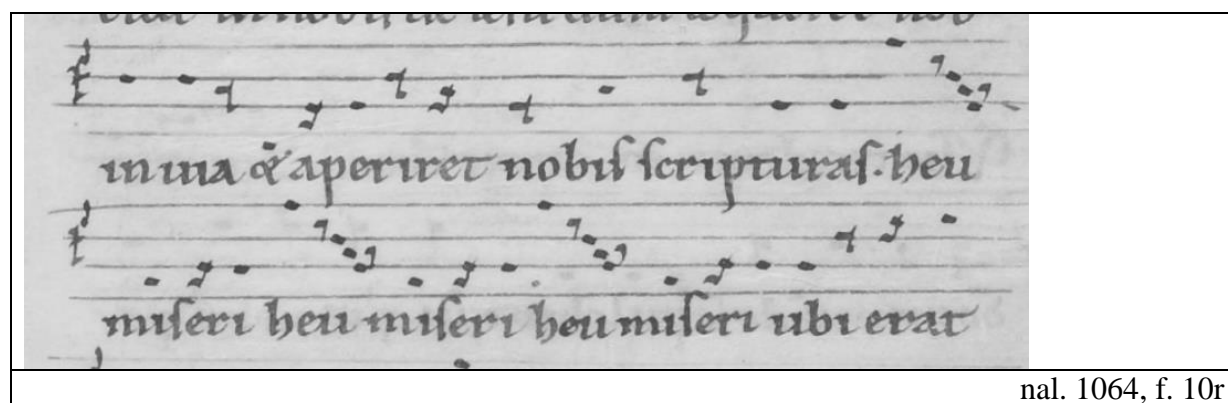 in uia & aperiret nobis scripturas. heu
miseri heu miseri heu miseri ubi erat
nal. 1064, f. 10r